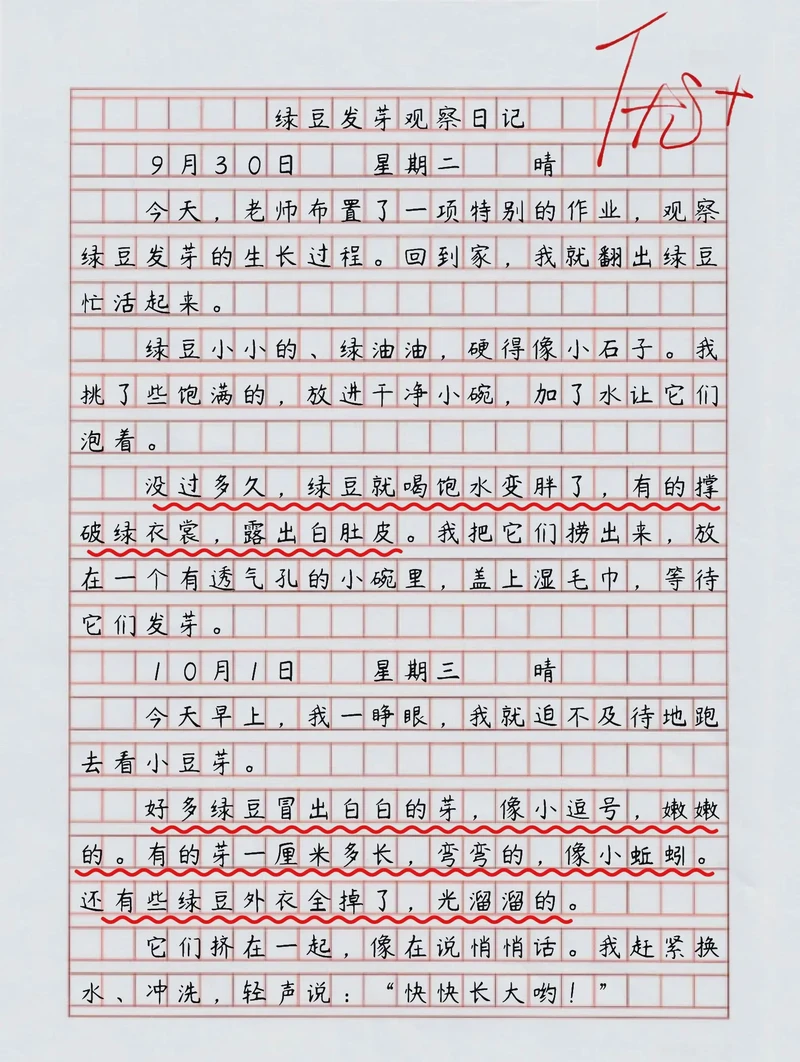 绿豆发芽观察日记
9月30日 星期二 晴
今天，老师布置了一项特别的作业，观察
绿豆发芽的生长过程。回到家，我就翻出绿豆
忙活起来。
绿豆小小的、绿油油，硬得像小石子。我
挑了些饱满的，放进干净小碗，加了水让它们
泡着。
没过多久，绿豆就喝饱水变胖了，有的撑
破绿衣裳，露出白肚皮。我把它们捞出来，放
在一个有透气孔的小碗里，盖上湿毛巾，等待
它们发芽。
10月1日 星期三 晴
今天早上，我一睁眼，我就迫不及待地跑
去看小豆芽。
好多绿豆冒出白白的芽，像小逗号，嫩嫩
的。有的芽一厘米多长，弯弯的，像小蚯蚓。
还有些绿豆外衣全掉了，光溜溜的。
它们挤在一起，像在说悄悄话。我赶紧换
水、冲洗，轻声说：“快快长大哟！”